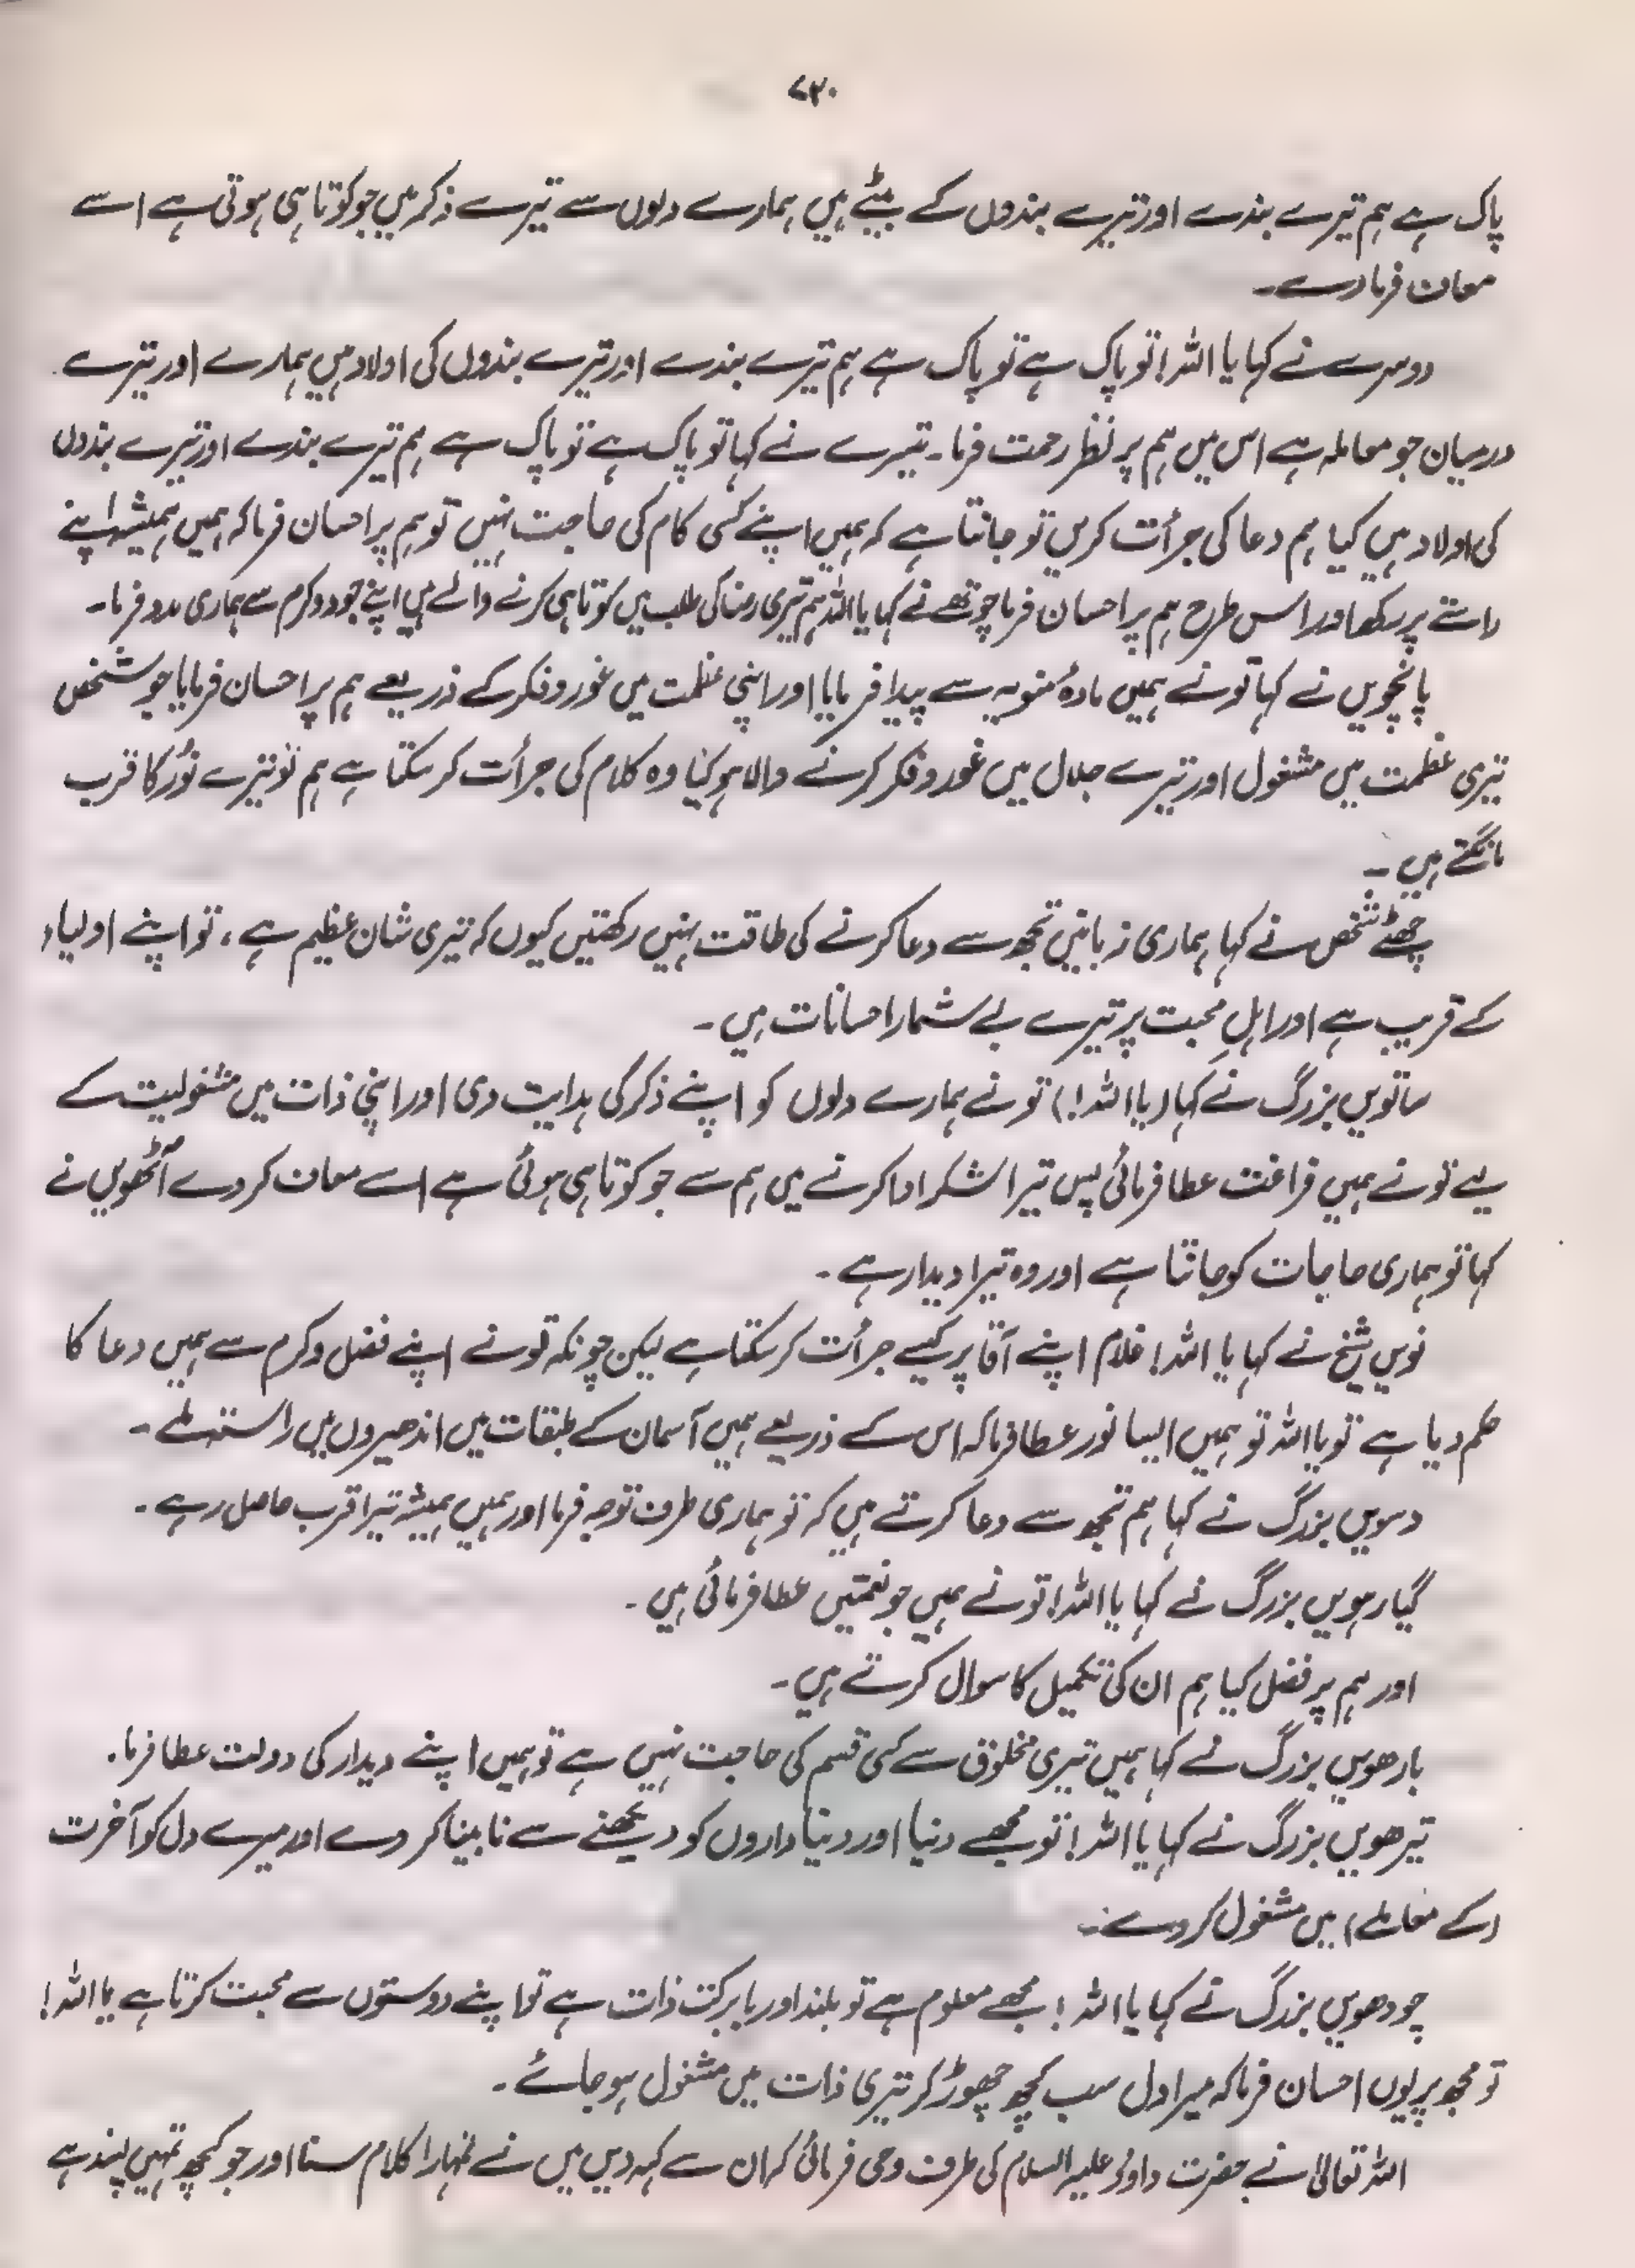 ۷۳۰
پاک ہے ہم تیرے بندے اور تیرے بندوں کے بیٹے ہیں ہمارے دلوں سے تیرے ذکر میں جو کوتاہی ہوتی ہے اسے
معاف فرما دے۔
دوسرے نے کہا یا اللہ! تو پاک ہے تو پاک ہے ہم تیرے بندے اور تیرے بندوں کی اولاد ہیں ہمارے اور تیرے
درمیان جو معاملہ ہے اس میں ہم پر نظر رحمت فرما۔ تیسرے نے کہا تو پاک ہے تو پاک ہے ہم تیرے بندے اور تیرے بندوں
کی اولاد ہیں کیا ہم دعا کی جرأت کریں تو جانتا ہے کہ ہمیں اپنے کسی کام کی حاجت نہیں تو ہم پر احسان فرما کہ ہمیں ہمیشہ اپنے
راستے پر رکھ اور اس طرح ہم پر احسان فرما چوتھے نے کہا یا اللہ ہم تیری رضا کی طلب میں کوتاہی کرنے والے ہیں اپنے جود و کرم سے ہماری مدد فرما۔
پانچویں نے کہا تو نے ہمیں مادۂ منویہ سے پیدا فرمایا اور اپنی عظمت میں غور و فکر کے ذریعے ہم پر احسان فرمایا جو شخص
تیری عظمت میں مشغول اور تیرے جلال میں غور و فکر کرنے والا ہو کیا وہ کلام کی جرأت کر سکتا ہے ہم تو تیرے نور کا قرب
مانگتے ہیں۔
چھٹے شخص نے کہا ہماری زبانیں تجھ سے دعا کرنے کی طاقت نہیں رکھتیں کیوں کہ تیری شان عظیم ہے، تو اپنے اولیاء
کے قریب ہے اور اہلِ محبت پر تیرے بے شمار احسانات ہیں۔
ساتویں بزرگ نے کہا (یا اللہ!) تو نے ہمارے دلوں کو اپنے ذکر کی ہدایت دی اور اپنی ذات میں مشغولیت کے
لیے تو نے ہمیں فراغت عطا فرمائی پس تیرا شکر ادا کرنے میں ہم سے جو کوتاہی ہوئی ہے اسے معاف کر دے آٹھویں نے
کہا تو ہماری حاجات کو جانتا ہے اور وہ تیرا دیدار ہے۔
نویں شیخ نے کہا یا اللہ! غلام اپنے آقا پر کیسے جرأت کر سکتا ہے لیکن چونکہ تو نے اپنے فضل و کرم سے ہمیں دعا کا
حکم دیا ہے تو یا اللہ تو ہمیں ایسا نور عطا فرما کہ اس کے ذریعے ہمیں آسمان کے طبقات میں اندھیروں میں راستہ ملے۔
دسویں بزرگ نے کہا ہم تجھ سے دعا کرتے ہیں کہ تو ہماری طرف توجہ فرما اور ہمیں ہمیشہ تیرا قرب حاصل رہے۔
گیارہویں بزرگ نے کہا یا اللہ! تو نے ہمیں جو نعمتیں عطا فرمائی ہیں۔
اور ہم پر فضل کیا ہم ان کی تکمیل کا سوال کرتے ہیں۔
بارھویں بزرگ نے کہا ہمیں تیری مخلوق سے کسی قسم کی حاجت نہیں ہے تو ہمیں اپنے دیدار کی دولت عطا فرما۔
تیرھویں بزرگ نے کہا یا اللہ! تو مجھے دنیا اور دنیا داروں کو دیکھنے سے نابینا کر دے اور میرے دل کو آخرت
(کے معاملے) میں مشغول کر دے۔
چودھویں بزرگ نے کہا یا اللہ! مجھے معلوم ہے تو بلند اور بابرکت ذات ہے تو اپنے دوستوں سے محبت کرتا ہے یا اللہ!
تو مجھ پر یوں احسان فرما کہ میرا دل سب کچھ چھوڑ کر تیری ذات میں مشغول ہو جائے۔
اللہ تعالیٰ نے حضرت داؤد علیہ السلام کی طرف وحی فرمائی کہ ان سے کہہ دیں میں نے تمہارا کلام سنا اور جو کچھ تمہیں پسند ہے